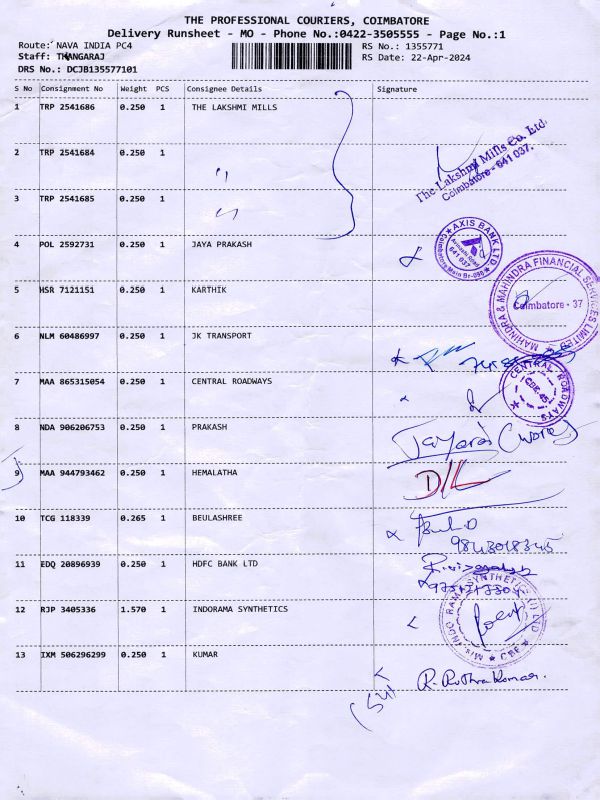 THE PROFESSIONAL COURIERS, COIMBATORE
Delivery Runsheet - MO - Phone No.:0422-3505555 - Page No.:1
Route: NAVA INDIA PC4 RS No.: 1355771
Staff: THANGARAJ RS Date: 22-Apr-2024
DRS No.: DCJB135577101
S No Consignment No Weight PCS Consignee Details Signature
1 TRP 2541686 0.250 1 THE LAKSHMI MILLS
2 TRP 2541684 0.250 1
The Lakshmi Mills Co. Ltd.
Coimbatore - 641 037.
3 TRP 2541685 0.250 1
4 POL 2592731 0.250 1 JAYA PRAKASH
AXIS BANK LTD
Avinashi Road
641 037
Coimbatore Main Br-090
5 HSR 7121151 0.250 1 KARTHIK
MAHINDRA & MAHINDRA FINANCIAL SERVICES LIMITED
Coimbatore - 37
6 NLM 60486997 0.250 1 JK TRANSPORT
7 MAA 865315054 0.250 1 CENTRAL ROADWAYS
CENTRAL ROADWAYS
CBE-45
8 NDA 906206753 0.250 1 PRAKASH
9 MAA 944793462 0.250 1 HEMALATHA
10 TCG 118339 0.265 1 BEULASHREE
9843018345
11 EDQ 20896939 0.250 1 HDFC BANK LTD
12 RJP 3405336 1.570 1 INDORAMA SYNTHETICS
M/s. INDO RAMA SYNTHETICS (I) LTD
CBE
13 IXM 506296299 0.250 1 KUMAR
R. Ruthra Kumar.